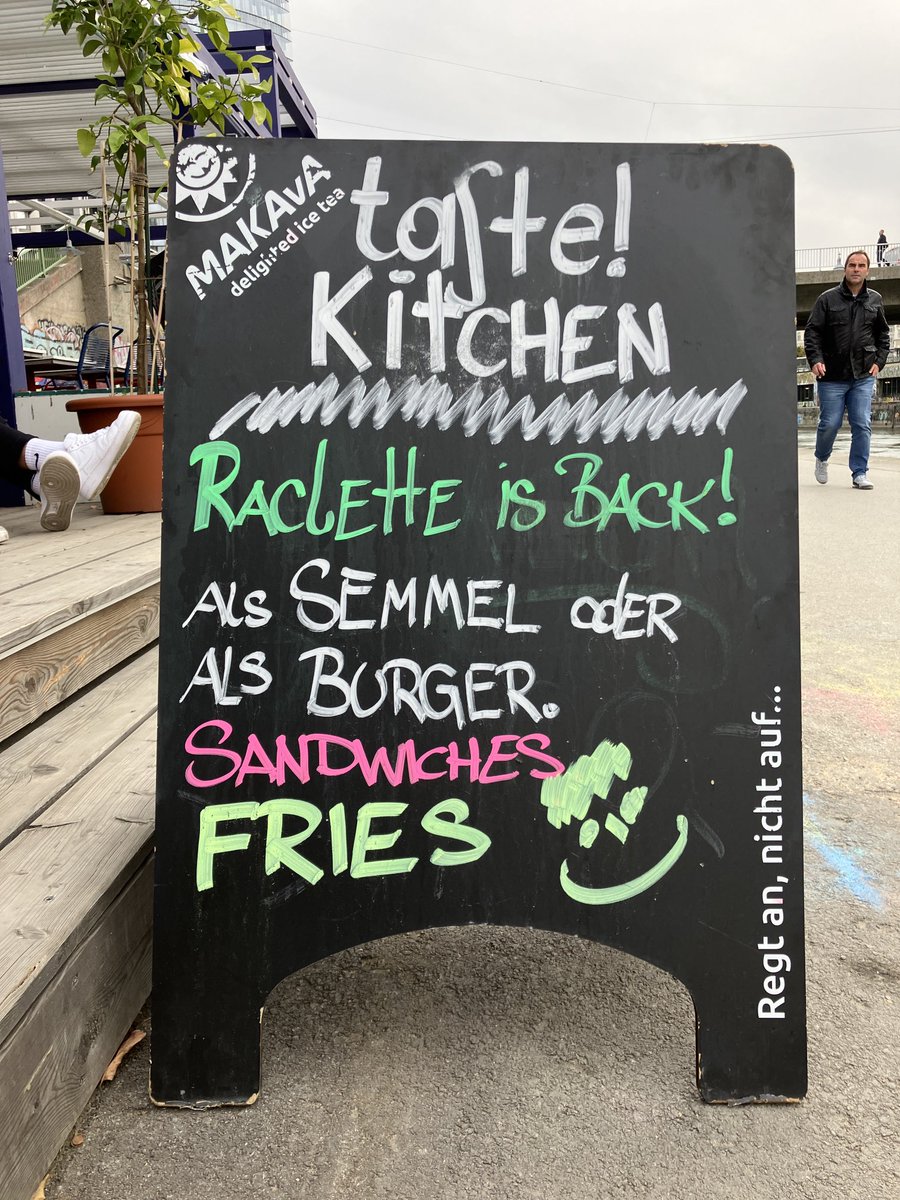 MAKAvA
delighted ice tea
taste!
KitCHEN
RACLETTE is BACK!
ALS SEMMEL odER
ALS BURGER.
SANDWICHES
FRIES
Regt an, nicht auf...